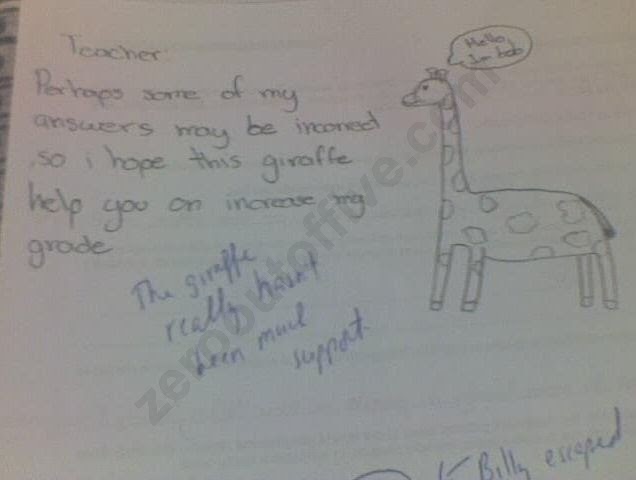 Teacher.
Perhaps some of my
answers may be incorrect
so i hope this giraffe
help you on increase my
grade
Hello,
Im bob
The giraffe
really hasn't
been much
support.
Billy escaped
zerooutoffive.com